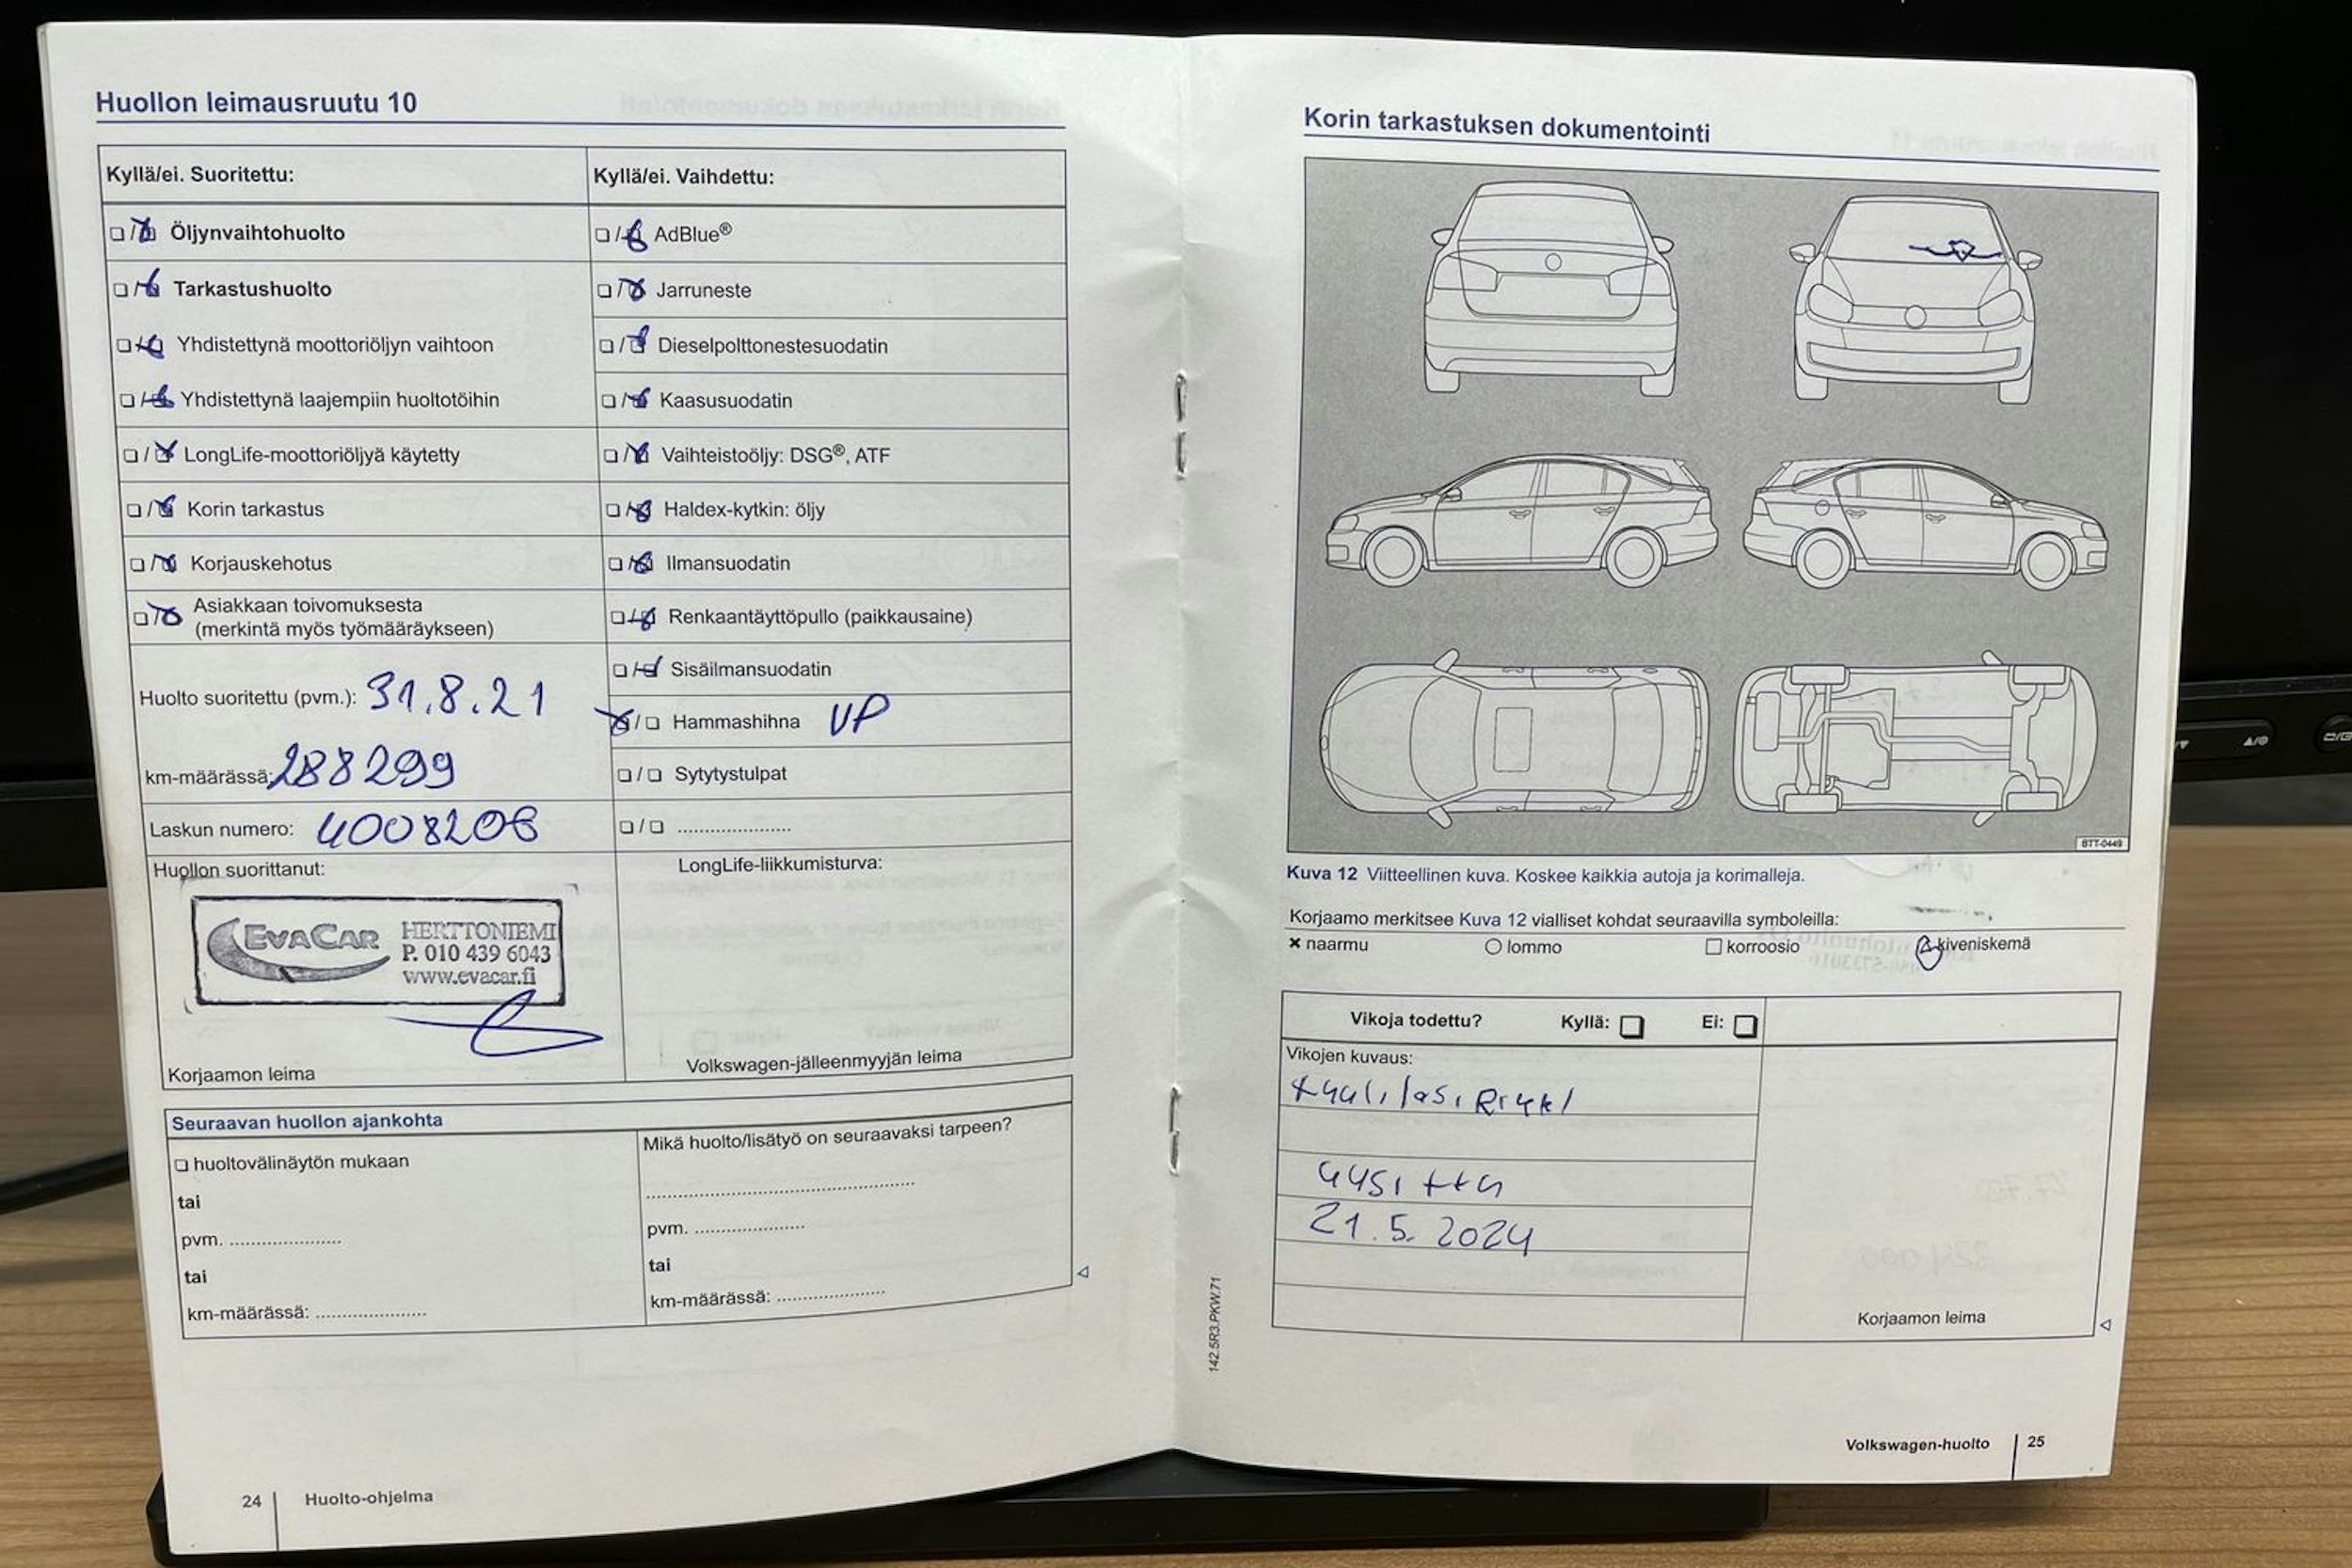 Huollon leimausruutu 10
Kyllä/ei. Suoritettu:
Öljynvaihtohuolto
Tarkastushuolto
Yhdistettynä moottoriöljyn vaihtoon
Yhdistettynä laajempiin huoltotöihin
LongLife-moottoriöljyä käytetty
Korin tarkastus
Korjauskehotus
Asiakkaan toivomuksesta
(merkintä myös työmääräykseen)
Huolto suoritettu (pvm.): 31.8.21
km-määrässä: 288299
Laskun numero: 4008206
Huollon suorittanut:
EVACAR
HERTTONIEMI
P. 010 439 6043
www.evacar.fi
Korjaamon leima
Kyllä/ei. Vaihdettu:
AdBlue®
Jarruneste
Dieselpolttonestesuodatin
Kaasusuodatin
Vaihteistoöljy: DSG®, ATF
Haldex-kytkin: öljy
Ilmansuodatin
Renkaantäyttöpullo (paikkausaine)
Sisäilmansuodatin
Hammashihna VP
Sytytystulpat
LongLife-liikkumisturva:
Volkswagen-jälleenmyyjän leima
Seuraavan huollon ajankohta
huoltovälinäytön mukaan
tai
pvm. ....................
tai
km-määrässä: ....................
Mikä huolto/lisätyö on seuraavaksi tarpeen?
pvm. ....................
tai
km-määrässä: ....................
24 Huolto-ohjelma
Korin tarkastuksen dokumentointi
BTT-0449
Kuva 12 Viitteellinen kuva. Koskee kaikkia autoja ja korimalleja.
Korjaamo merkitsee Kuva 12 vialliset kohdat seuraavilla symboleilla:
naarmu lommo korroosio kiveniskemä
Vikoja todettu? Kyllä: Ei:
Vikojen kuvaus:
21.5.2024
Korjaamon leima
142.5R3.PKW.71
Volkswagen-huolto 25